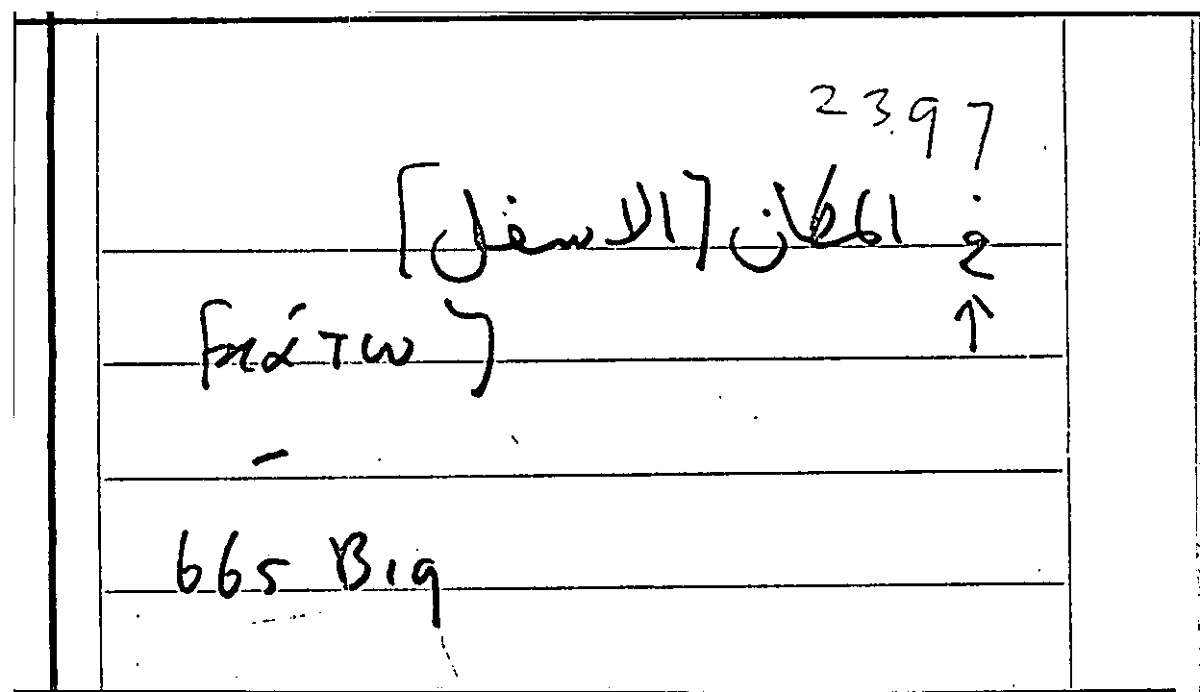 23.97
في المكان [الاسفل]
[κάτω]
665 B19